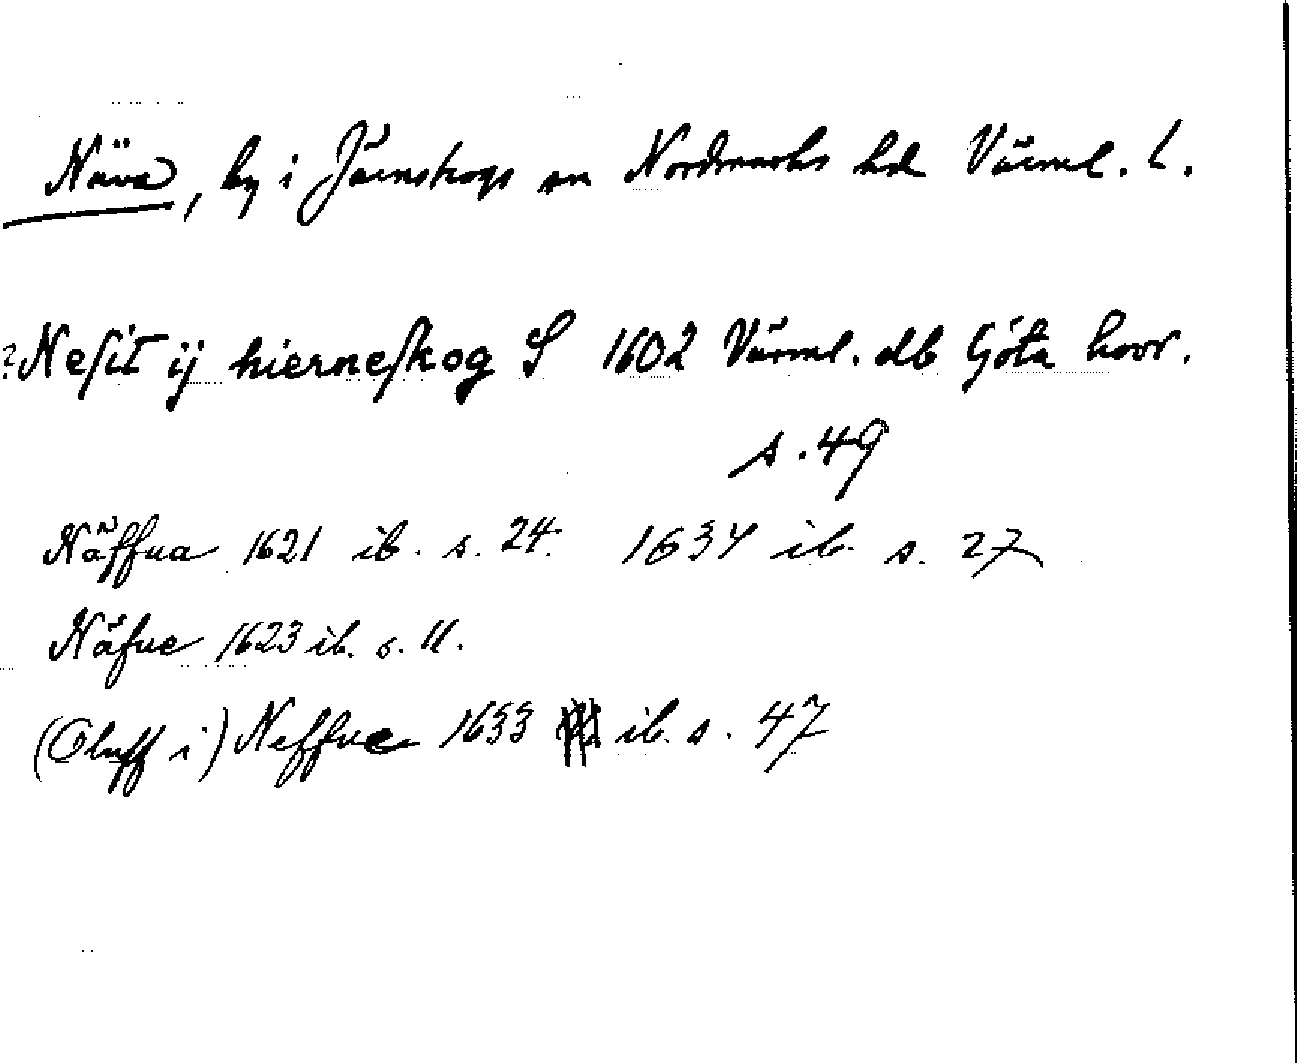 Näva, by i Järnskogs sn Nordmarks hd Värml. l.
? Nesit ij hierneskog S 1602 Värml. db Göta hovr.
s. 49
Näffua 1621 ib. s. 24. 1634 ib. s. 27
Näfue 1623 ib. s. 11.
(Oluff i) Neffue 1633 ib. s. 47